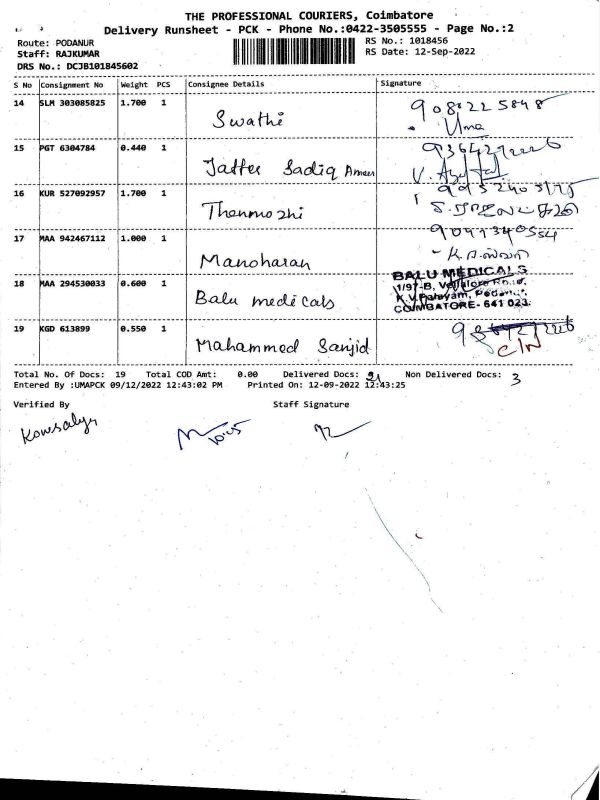 THE PROFESSIONAL COURIERS, Coimbatore
Delivery Runsheet - PCK - Phone No.:0422-3505555 - Page No.:2
Route: PODANUR RS No.: 1018456
Staff: RAJKUMAR RS Date: 12-Sep-2022
DRS No.: DCJB101845602
S No Consignment No Weight PCS Consignee Details Signature
14 SLM 303085825 1.700 1 Swathi
Uma
15 PGT 6304784 0.440 1 Jaffer Sadiq Ameer
16 KUR 527092957 1.700 1 Thenmozhi
17 MAA 942467112 1.000 1 Manoharan
18 MAA 294530033 0.600 1 Balu medicals
BALU MEDICALS
1/97-B, Vellalore Road,
K.V.Palayam, Podanur,
COIMBATORE- 641 023.
19 KGD 613899 0.550 1 Mahammed Sanjid
C/N
Total No. Of Docs: 19 Total COD Amt: 0.00 Delivered Docs: Non Delivered Docs: 3
Entered By :UMAPCK 09/12/2022 12:43:02 PM Printed On: 12-09-2022 12:43:25
Verified By Staff Signature
Kowsalya